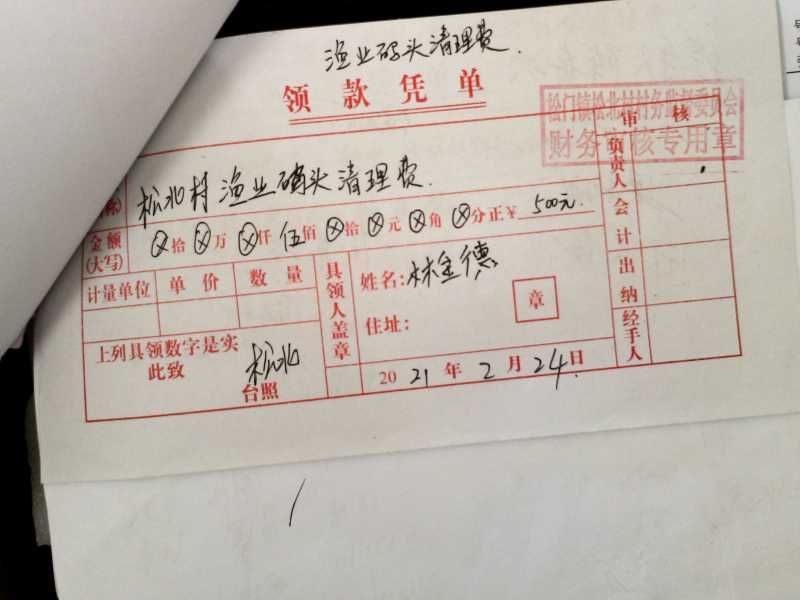 渔业码头清理费.
领款凭单
松门镇松北村村务监督委员会
财务审核专用章
审核
松北村渔业码头清理费.
金额(大写) ⊗拾⊗万⊗仟伍佰⊗拾⊗元⊗角⊗分正¥500元.
负责人
会计
计量单位 单价 数量
具领人盖章
姓名:林金德
出纳
住址:
章
经手人
上列具领数字是实
此致
松北
台照
2021年2月24日